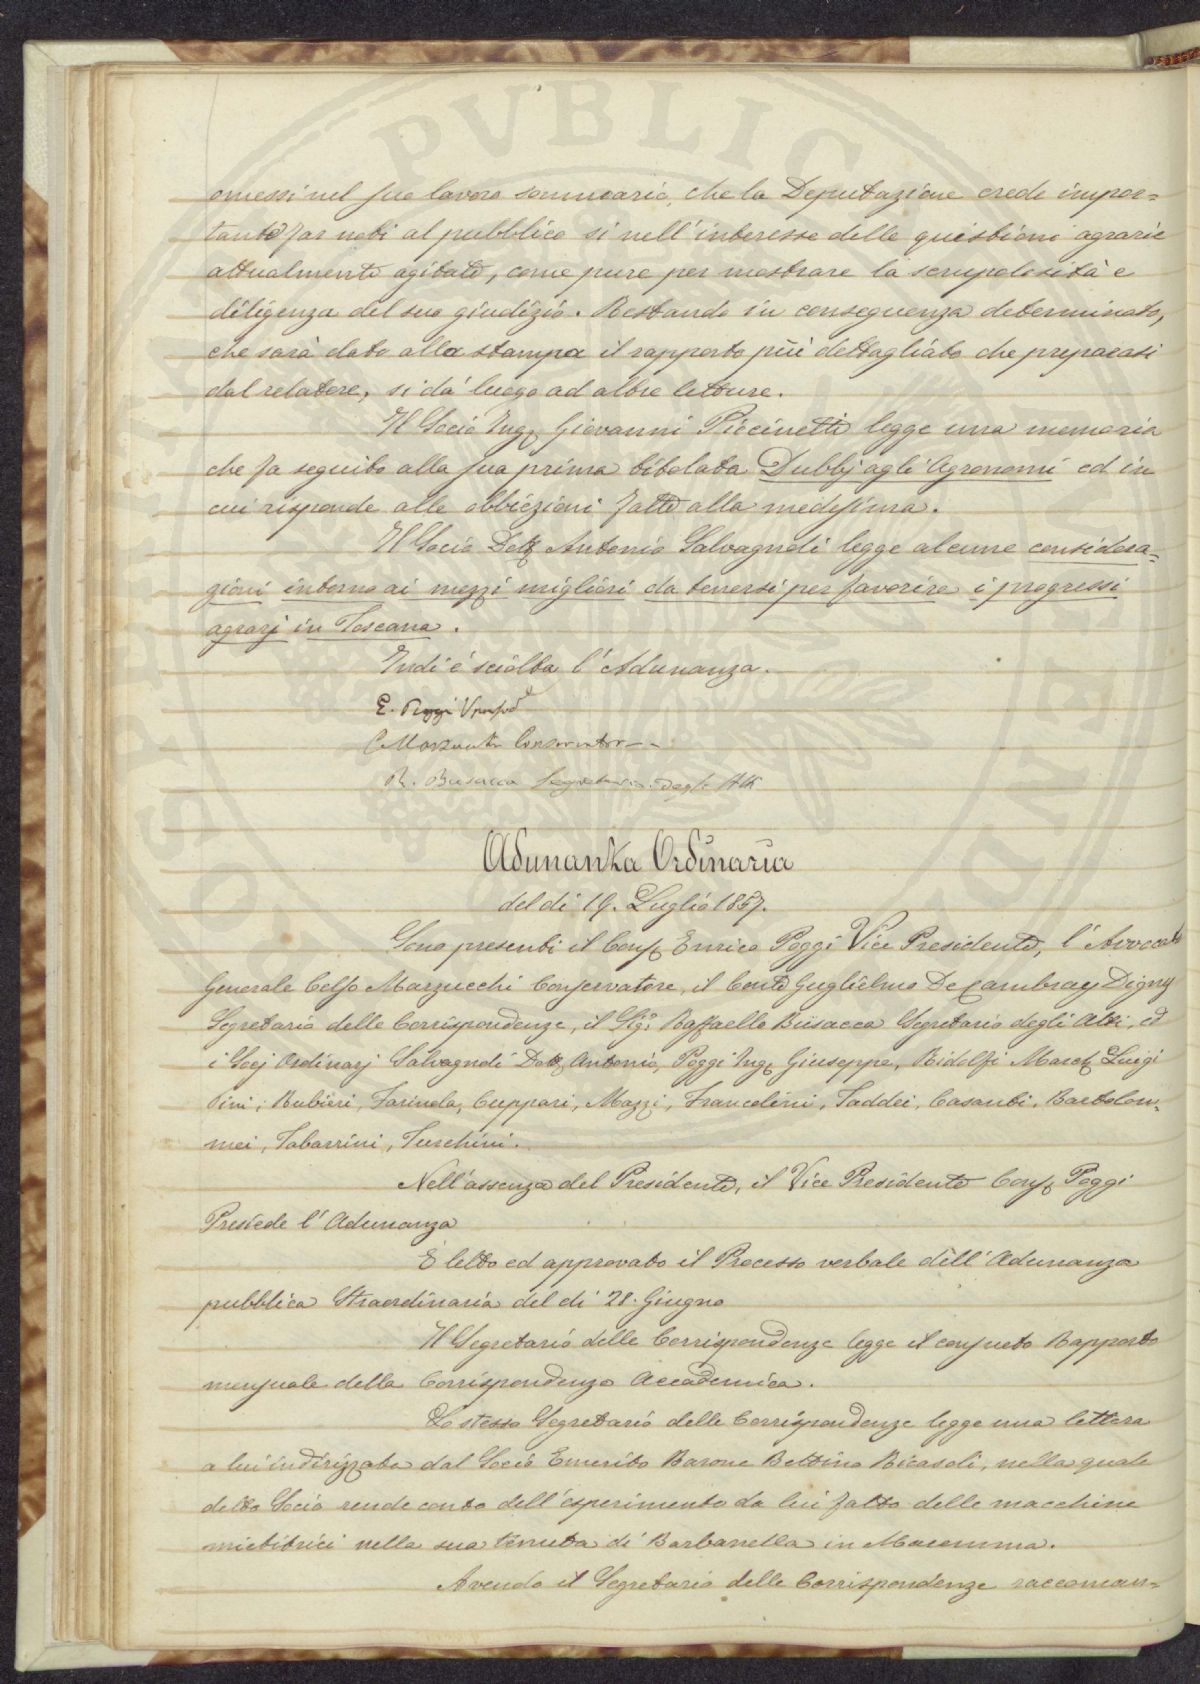 omessi nel suo lavoro sommario, che la Deputazione crede impor=
tante far noti al pubblico si nell'interesse delle quistioni agrarie
attualmente agitate, come pure per mostrare la scrupolosità e
diligenza del suo giudizio. Restando in conseguenza determinato,
che sarà dato alla stampa il rapporto più dettagliato che preparasi
dal relatore, si dà luogo ad altre letture.
Il Socio Ing. Giovanni Piccinetti legge una memoria
che fa seguito alla sua prima titolata Dubbj agli Agronomi ed in
cui risponde alle obbiezioni fatte alla medesima.
Il Socio Dott. Antonio Salvagnoli legge alcune considera=
zioni intorno ai mezzi migliori da tenersi per favorire i progressi
agrarj in Toscana.
Indi è sciolta l'Adunanza.
E. Poggi V
C Marzucchi Conservatore
R. Busacca Segretario degli Atti
Adunanza Ordinaria
del dì 19. Luglio 1857.
Sono presenti il Cons. Enrico Poggi Vice Presidente, l'Avvocato
Generale Celso Marzucchi Conservatore, il Conte Guglielmo De Cambray Digny
Segretario delle Corrispondenze, il Sigr. Raffaello Busacca Segretario degli Atti, ed
i Socj Ordinarj Salvagnoli Dott. Antonio, Poggi Ing. Giuseppe, Ridolfi March. Luigi
Pini, Rubieri, Farinola, Cuppari, Mazzi, Francolini, Taddei, Casanti, Bartolom=
mei, Tabarrini, Turchini.
Nell'assenza del Presidente, il Vice Presidente Cons. Poggi
Presiede l'Adunanza
È letto ed approvato il Processo verbale dell'Adunanza
pubblica Straordinaria del dì 28. Giugno
Il Segretario delle Corrispondenze legge il consueto Rapporto
mensuale della Corrispondenza Accademica.
Lo stesso Segretario delle Corrispondenze legge una lettera
a lui indirizzata dal Socio Emerito Barone Bettino Ricasoli, nella quale
detto Socio rende conto dell'esperimento da lui fatto delle macchine
mietitrici nella sua tenuta di Barbanella in Maremma.
Avendo il Segretario delle Corrispondenze raccoman=